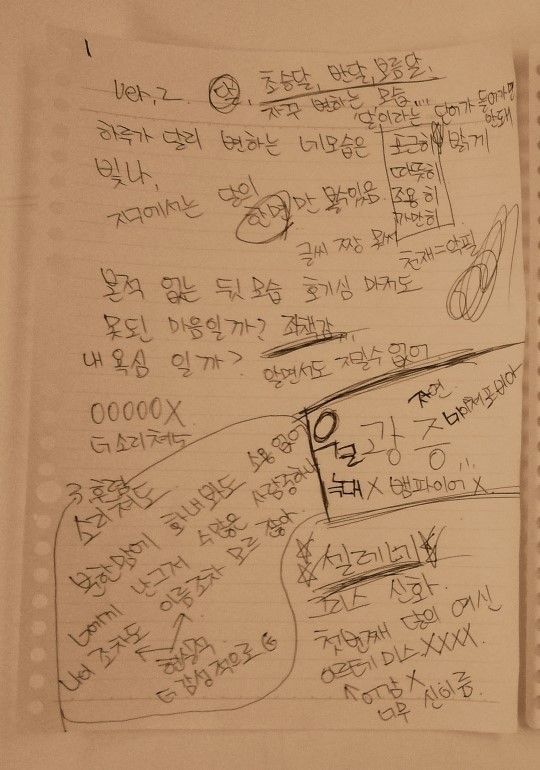 1
ver.2 달, 초승달, 반달, 보름달,
자꾸 변하는 모습...
'달'이라는 단어가 들어가면 안돼
하루가 달리 변하는 네모습은 포근히 밝게
따뜻히
조용히
가만히
빛나,
지구에서는 달의 한면만 볼수있음
글씨 짱 못써
천재=악필
본적 없는 뒷모습 호기심 마저도
못된 마음일까? 죄책감
내 욕심 일까? 알면서도 멈출수 없어
OOOOOX
소리쳐도
자연
강 중...
늑대X 뱀파이어X
3.후렴
소리쳐도 소용 없어
화내봐도
복한맘에 수많은 사람중 하나
너에게 난 그저 이름조차 모르잖아
너의 조차도
현실적
감성적으로
☆셀레네☆
그리스 신화
첫번째 달의 여신
아르테미스 XXXX
어감X
너무 신이름.